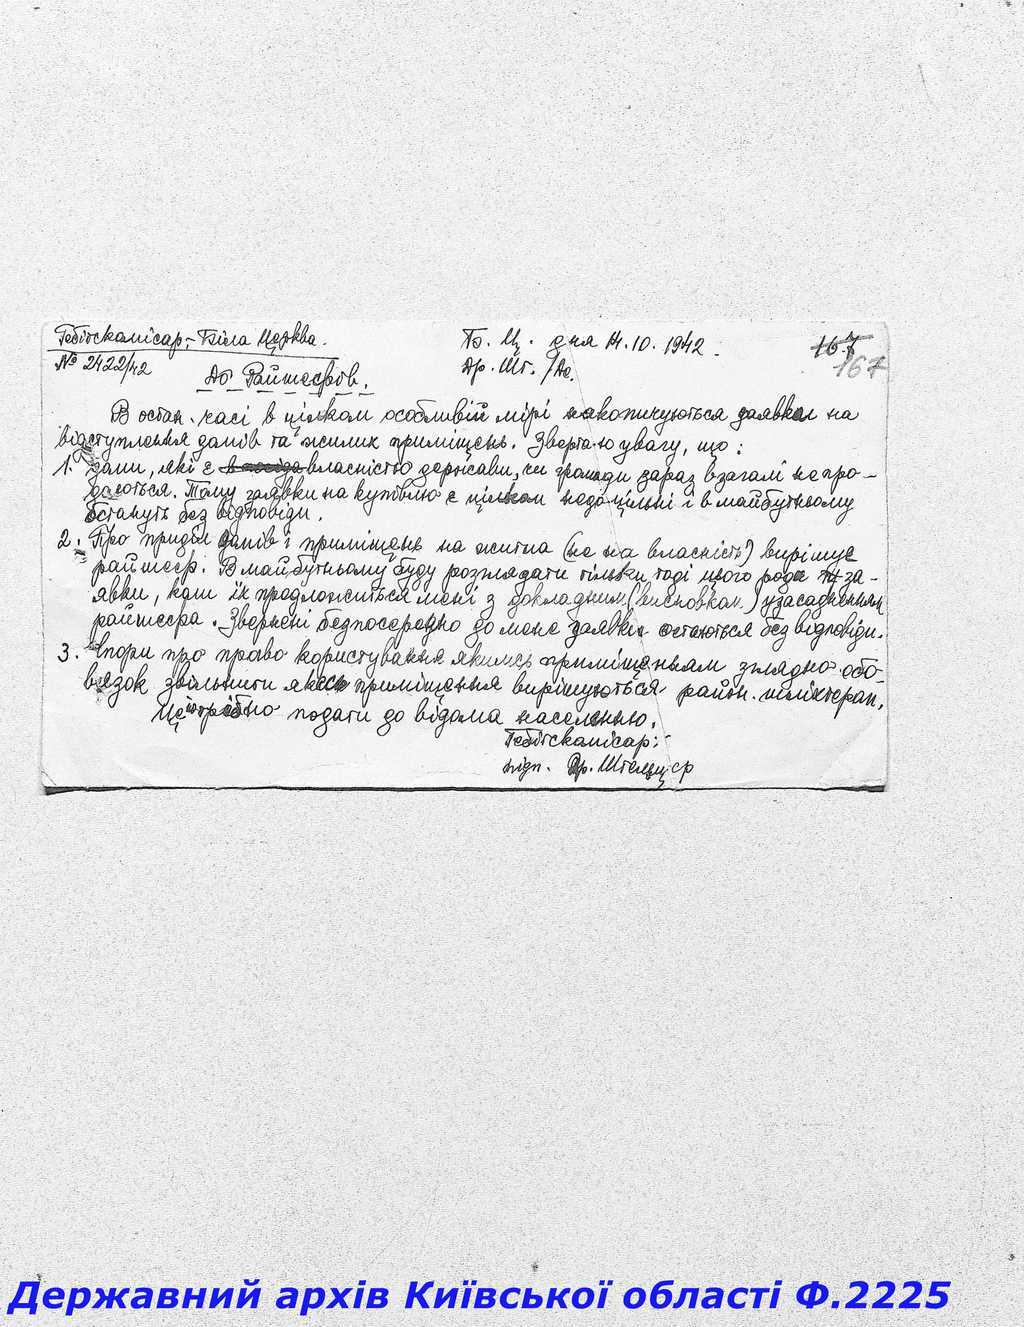 Гебітскомісар,- Біла Церква.
№ 2422/42
Б. Ц. дня 14.10.1942.
Др. Шт./Ас.
167
167
До Райшефів.
В остан. часі в цілком особливій мірі накопичуються заявки на
відступлення домів та жилих приміщень. Звертаю увагу, що:
1. доми, які є власністю держави, чи громади зараз взагалі не про-
даються. Тому заявки на купівлю є цілком недоцільні і в майбутньому
остануть без відповіди.
2. Про приділ домів і приміщень на житла (не на власність) вирішує
райшеф. В майбутньому буду розглядати тільки тоді цього роду за-
явки, коли їх предложиться мені з докладним (висновком) узасадненням
райшефа. Звернені безпосередньо до мене заявки остаються без відповіди.
3. Спори про право користування якимсь приміщенням зглядно обо-
в'язок звільнити якесь приміщення вирішуються район. шліхтерам.
Це потрібно подати до відома населенню.
Гебітскомісар:
підп. Др. Штельцер
Державний архів Київської області Ф.2225